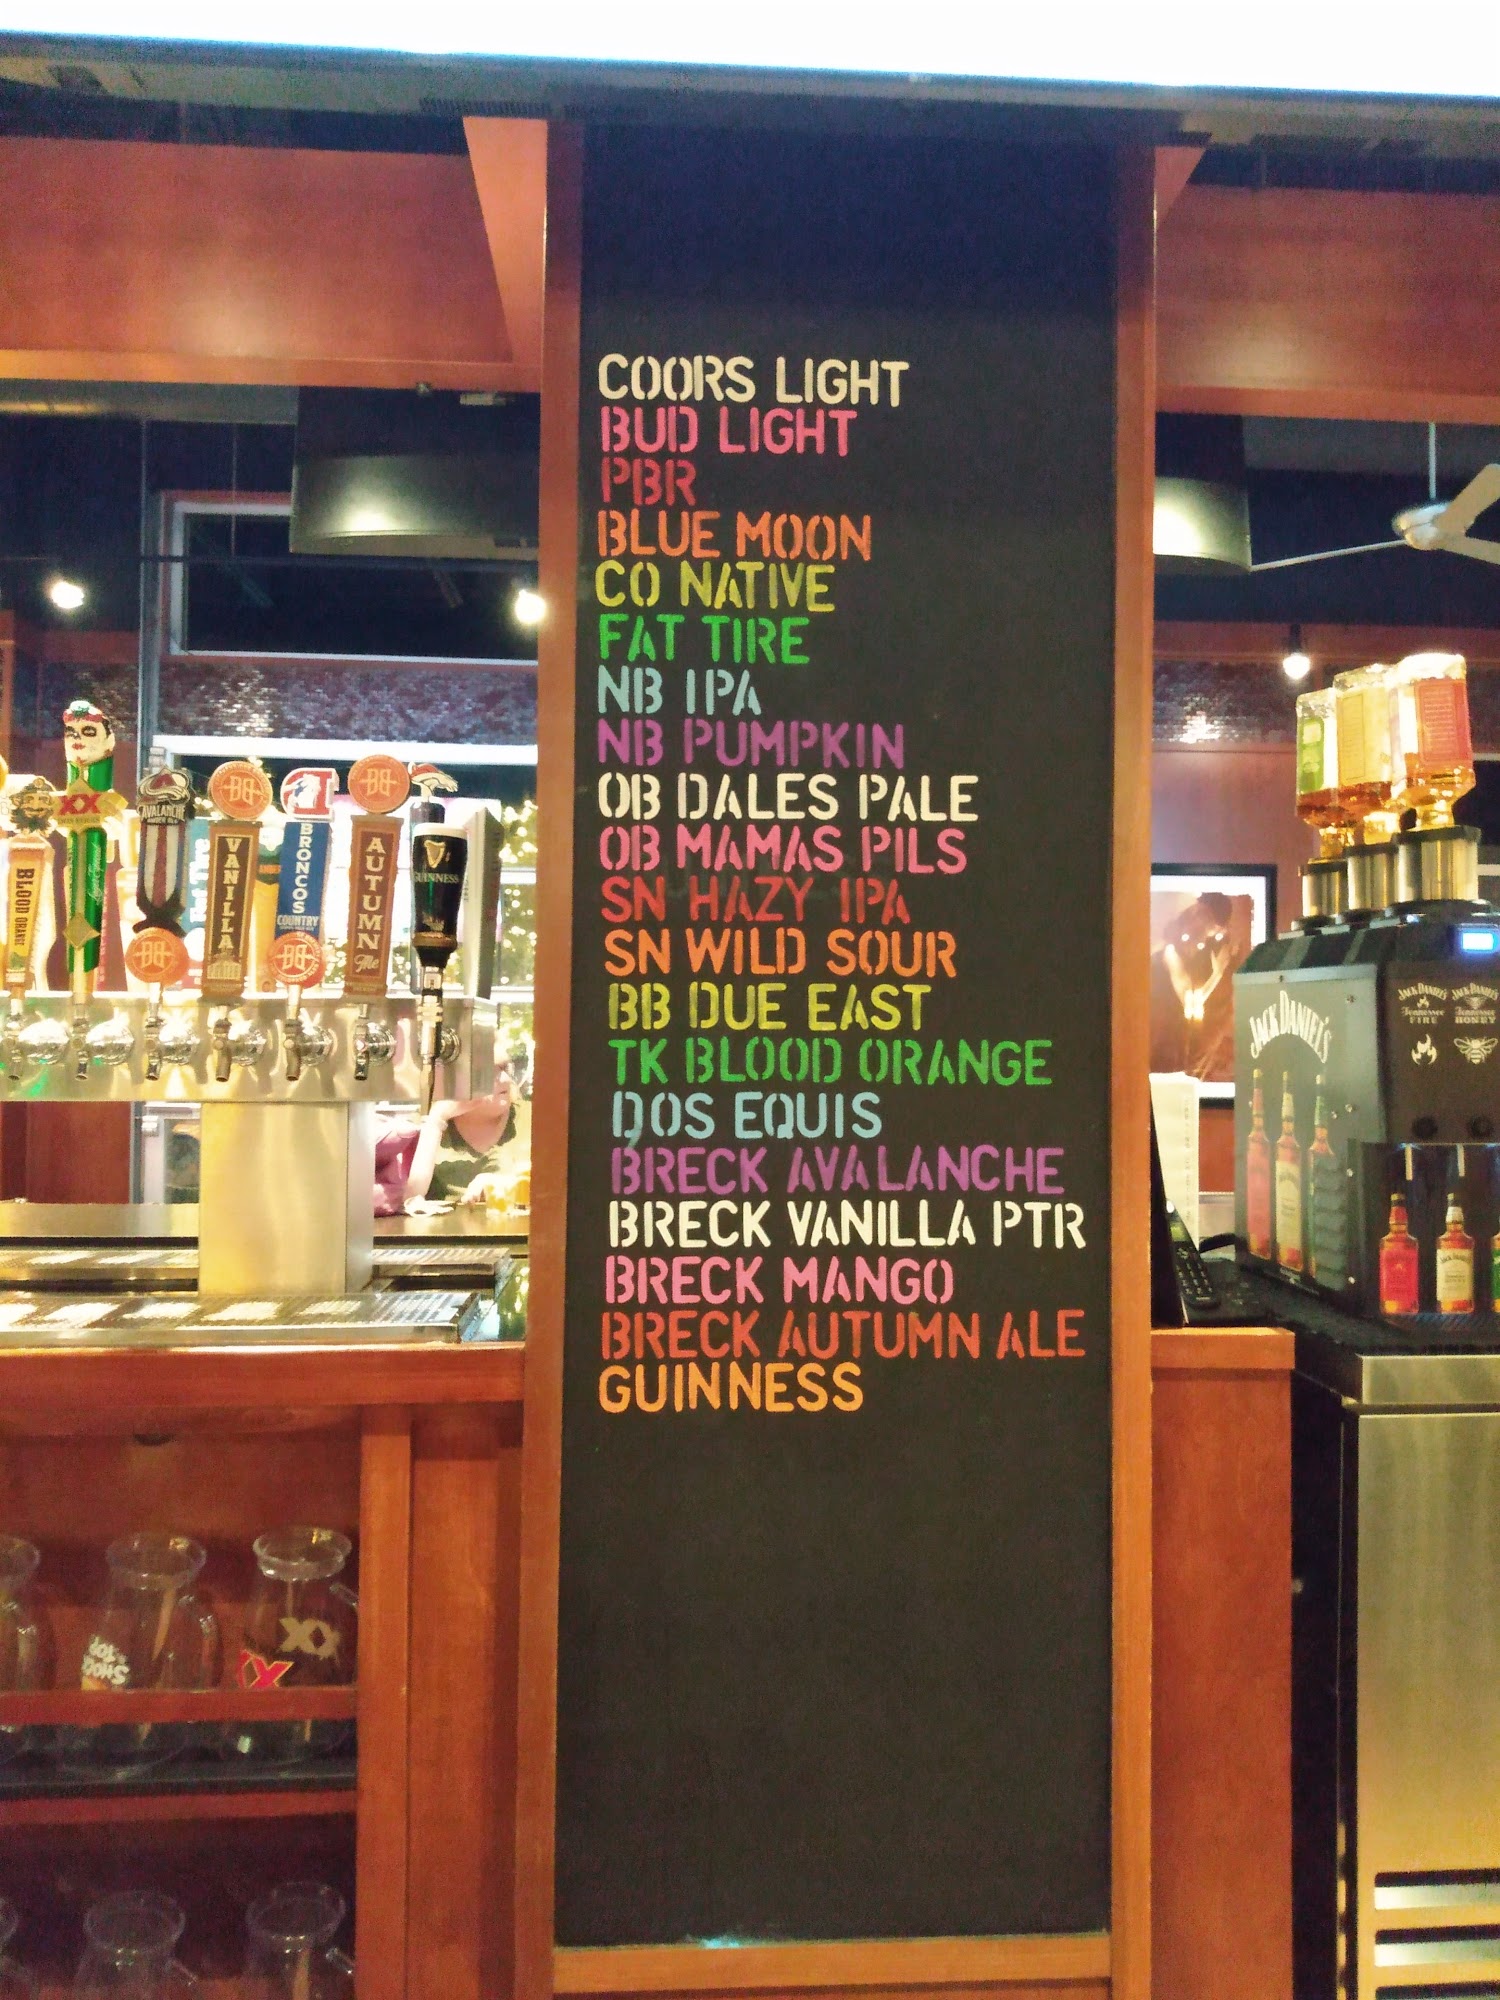 COORS LIGHT
BUD LIGHT
PBR
BLUE MOON
CO NATIVE
FAT TIRE
NB IPA
NB PUMPKIN
OB DALES PALE
OB MAMAS PILS
SN HAZY IPA
SN WILD SOUR
BB DUE EAST
TK BLOOD ORANGE
DOS EQUIS
BRECK AVALANCHE
BRECK VANILLA PTR
BRECK MANGO
BRECK AUTUMN ALE
GUINNESS
BLOOD ORANGE
XX
AVALANCHE
VANILLA
BRONCOS
COUNTRY
AUTUMN
Ale
GUINNESS
Fat Tire
SHOCK
TOP
XX
JACK DANIEL'S
JACK DANIEL'S
Tennessee
FIRE
JACK DANIEL'S
Tennessee
HONEY